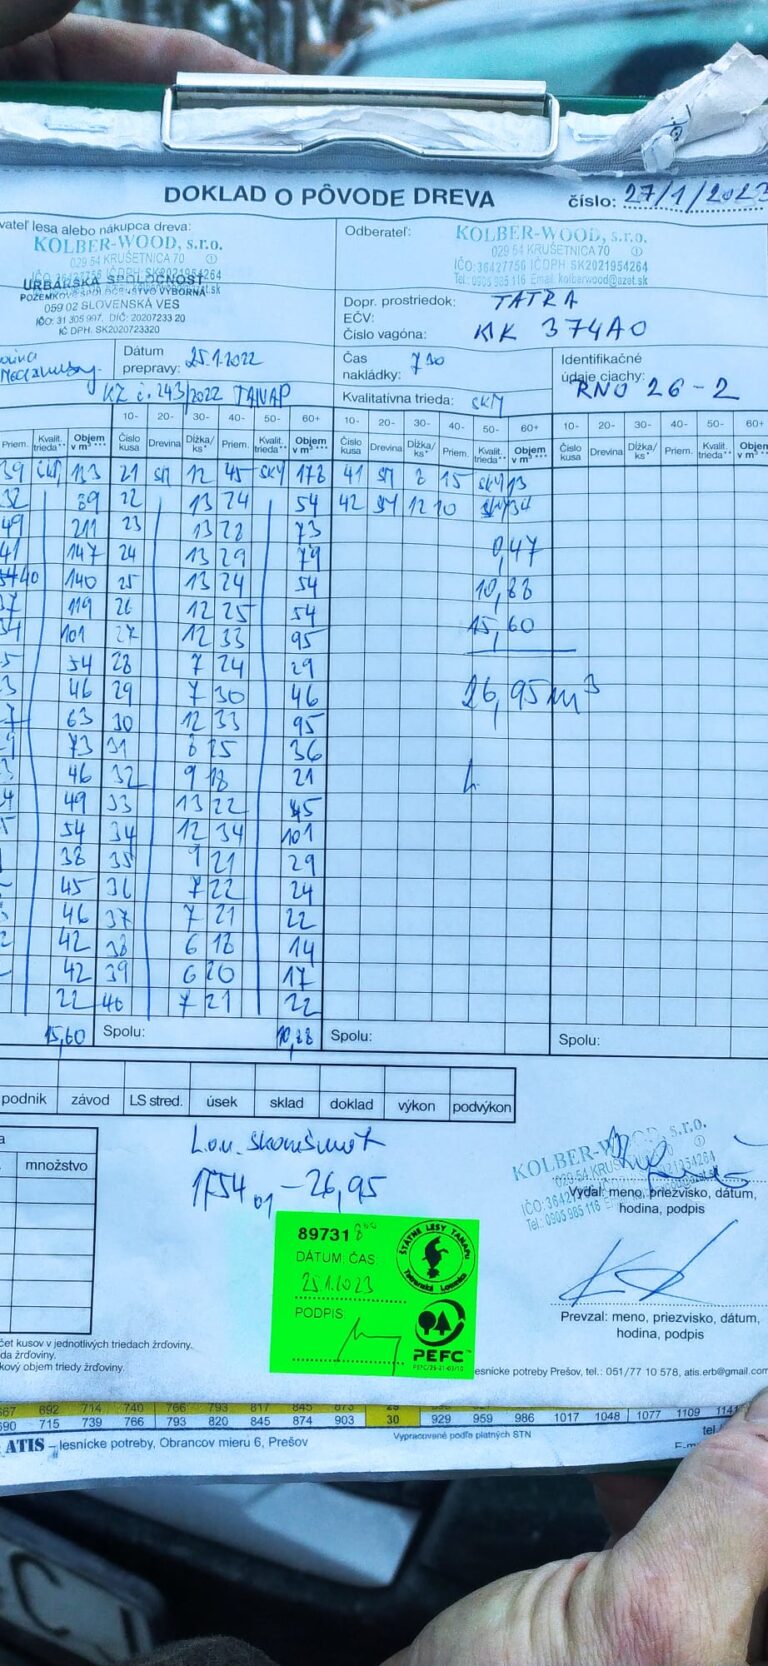 DOKLAD O PÔVODE DREVA
číslo: 27/1/2023
vateľ lesa alebo nákupca dreva:
KOLBER-WOOD, s.r.o.
029 54 KRUŠETNICA 70
URBÁRSKA SPOLOČNOSŤ
059 02 SLOVENSKÁ VES
IČO: 31 305 997, DIČ: 20207233 20
IČ DPH: SK2020723320
Odberateľ:
KOLBER-WOOD, s.r.o.
029 54 KRUŠETNICA 70
IČO: 36427756 IČDPH SK2021954264
Tel.: 0905 985 116 Email: kolberwood@azet.sk
Dopr. prostriedok: TATRA
EČV:
Číslo vagóna: KK 374AO
Dátum
prepravy: 25.1.2022
KZ č. 243/2022 TANAP
Čas
nakládky: 730
Kvalitatívna trieda: SKM
Identifikačné
údaje ciachy:
RNO 26-2
10- 20- 30- 40- 50- 60+ 10- 20- 30- 40- 50- 60+ 10- 20- 30- 40- 50- 60+
Priem. Kvalit. trieda** Objem v m³*** Číslo kusa Drevina Dĺžka/ks* Priem. Kvalit. trieda** Objem v m³*** Číslo kusa Drevina Dĺžka/ks* Priem. Kvalit. trieda** Objem v m³*** Číslo kusa Drevina Dĺžka/ks* Priem. Kvalit. trieda** Objem v m³
39 133 21 SM 12 45 178 41 SM 8 15 13
32 89 22 13 24 54 42 SM 12 10 34
49 211 23 13 28 73
0,47
41 147 24 13 29 79
40 140 25 13 24 54
10,88
37 119 26 12 25 54
15,60
34 101 27 12 33 95
5 54 28 7 24 29
3 46 29 7 30 46
26,95 m³
7 63 30 12 33 95
9 73 31 8 25 36
3 46 32 9 18 21
4 49 33 13 22 45
5 54 34 12 34 101
38 35 9 21 29
45 36 7 22 24
46 37 7 21 22
2 42 38 6 18 14
42 39 6 20 17
22 40 7 21 22
15,60 Spolu: 10,88 Spolu: Spolu:
podnik závod LS stred. úsek sklad doklad výkon podvýkon
množstvo
1754 01 – 26,95
KOLBER-WOOD, s.r.o.
029 54 KRUŠETNICA 70
Vydal: meno, priezvisko, dátum,
hodina, podpis
Prevzal: meno, priezvisko, dátum,
hodina, podpis
89731
DÁTUM ČAS
25.1.2023
PODPIS:
ŠTÁTNE LESY TANAPu
Tatranská Lomnica
PEFC
čet kusov v jednotlivých triedach žrďoviny.
da žrďoviny.
kový objem triedy žrďoviny.
esnícke potreby Prešov, tel.: 051/77 10 578, atis.erb@gmail.com
667 692 714 740 766 793 817 845 873 29
690 715 739 766 793 820 845 874 903 30 929 959 986 1017 1048 1077 1109 1141
ATIS – lesnícke potreby, Obrancov mieru 6, Prešov
Vypracované podľa platných STN
tel.